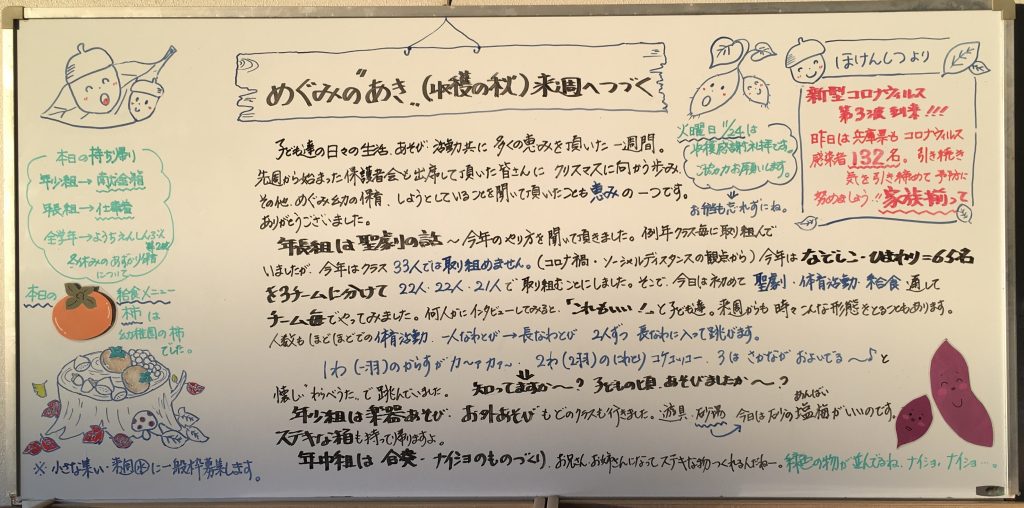 めぐみの"あき"(収穫の秋)来週へつづく
子ども達の日々の生活、あそび・活動共に多くの恵みを頂いた一週間。
先週から始まった保護者会も出席して頂いた皆さんにクリスマスに向かう歩み、
その他、めぐみ幼の保育、しようとしていることを聞いて頂いたことも恵みの一つです。
ありがとうございました。
年長組は聖劇の話〜今年のやり方を聞いて頂きました。例年クラス毎に取り組んで
いましたが、今年はクラス33人では取り組めません。(コロナ禍・ソーシャルディスタンスの観点から)今年はなでしこ・ひまわり=65名
を3チームに分けて 22人・22人・21人で取り組むことにしました。そこで、今日は初めて聖劇・体育活動・給食通して
チーム毎でやってみました。何人かにインタビューしてみると、「これもいい!」と子ども達。来週からも時々こんな形態をとるつもりです。
人数もほどほどでの体育活動、一人なわとび→長なわとび 2人ずつ長なわに入って跳びます。
1わ(一羽)のからすがカ〜ァカァ〜、2わ(2羽)の(にわとり)コケコッコー、3はさかながおよいでる〜♪と
懐しい"わらべうた"で跳んでいました。 知ってますか〜?子どもの頃、あそびましたか〜?
年少組は楽器あそび・お外あそびもどのクラスも行きました。遊具・砂場 今日は砂の塩梅がいいのです。
あんばい
ステキな箱も持って帰りますよ。
年中組は合奏・ナイショのものづくり、お兄さんお姉さんになってステキな物つくれるんだね〜。緑色の物が並んでるね、ナイショ、ナイショ…。
本日の持ち帰り
年少組→
年長組→
全学年→ようちえんしんぶん
冬休みのあずかり保育
について
本日の給食メニュー
柿は
幼稚園の柿
でした。
※小さな集い・来週㊌に一般枠募集します。
火曜日 11/24は
収穫感謝礼拝です。
ご協力お願いします。
お弁当も忘れずにね。
ほけんしつより
新型コロナウィルス
第3波到来!!!
昨日は兵庫県もコロナウィルス
感染者132名。引き続き
気を引き締めて予防に
努めましょう!!家族揃って